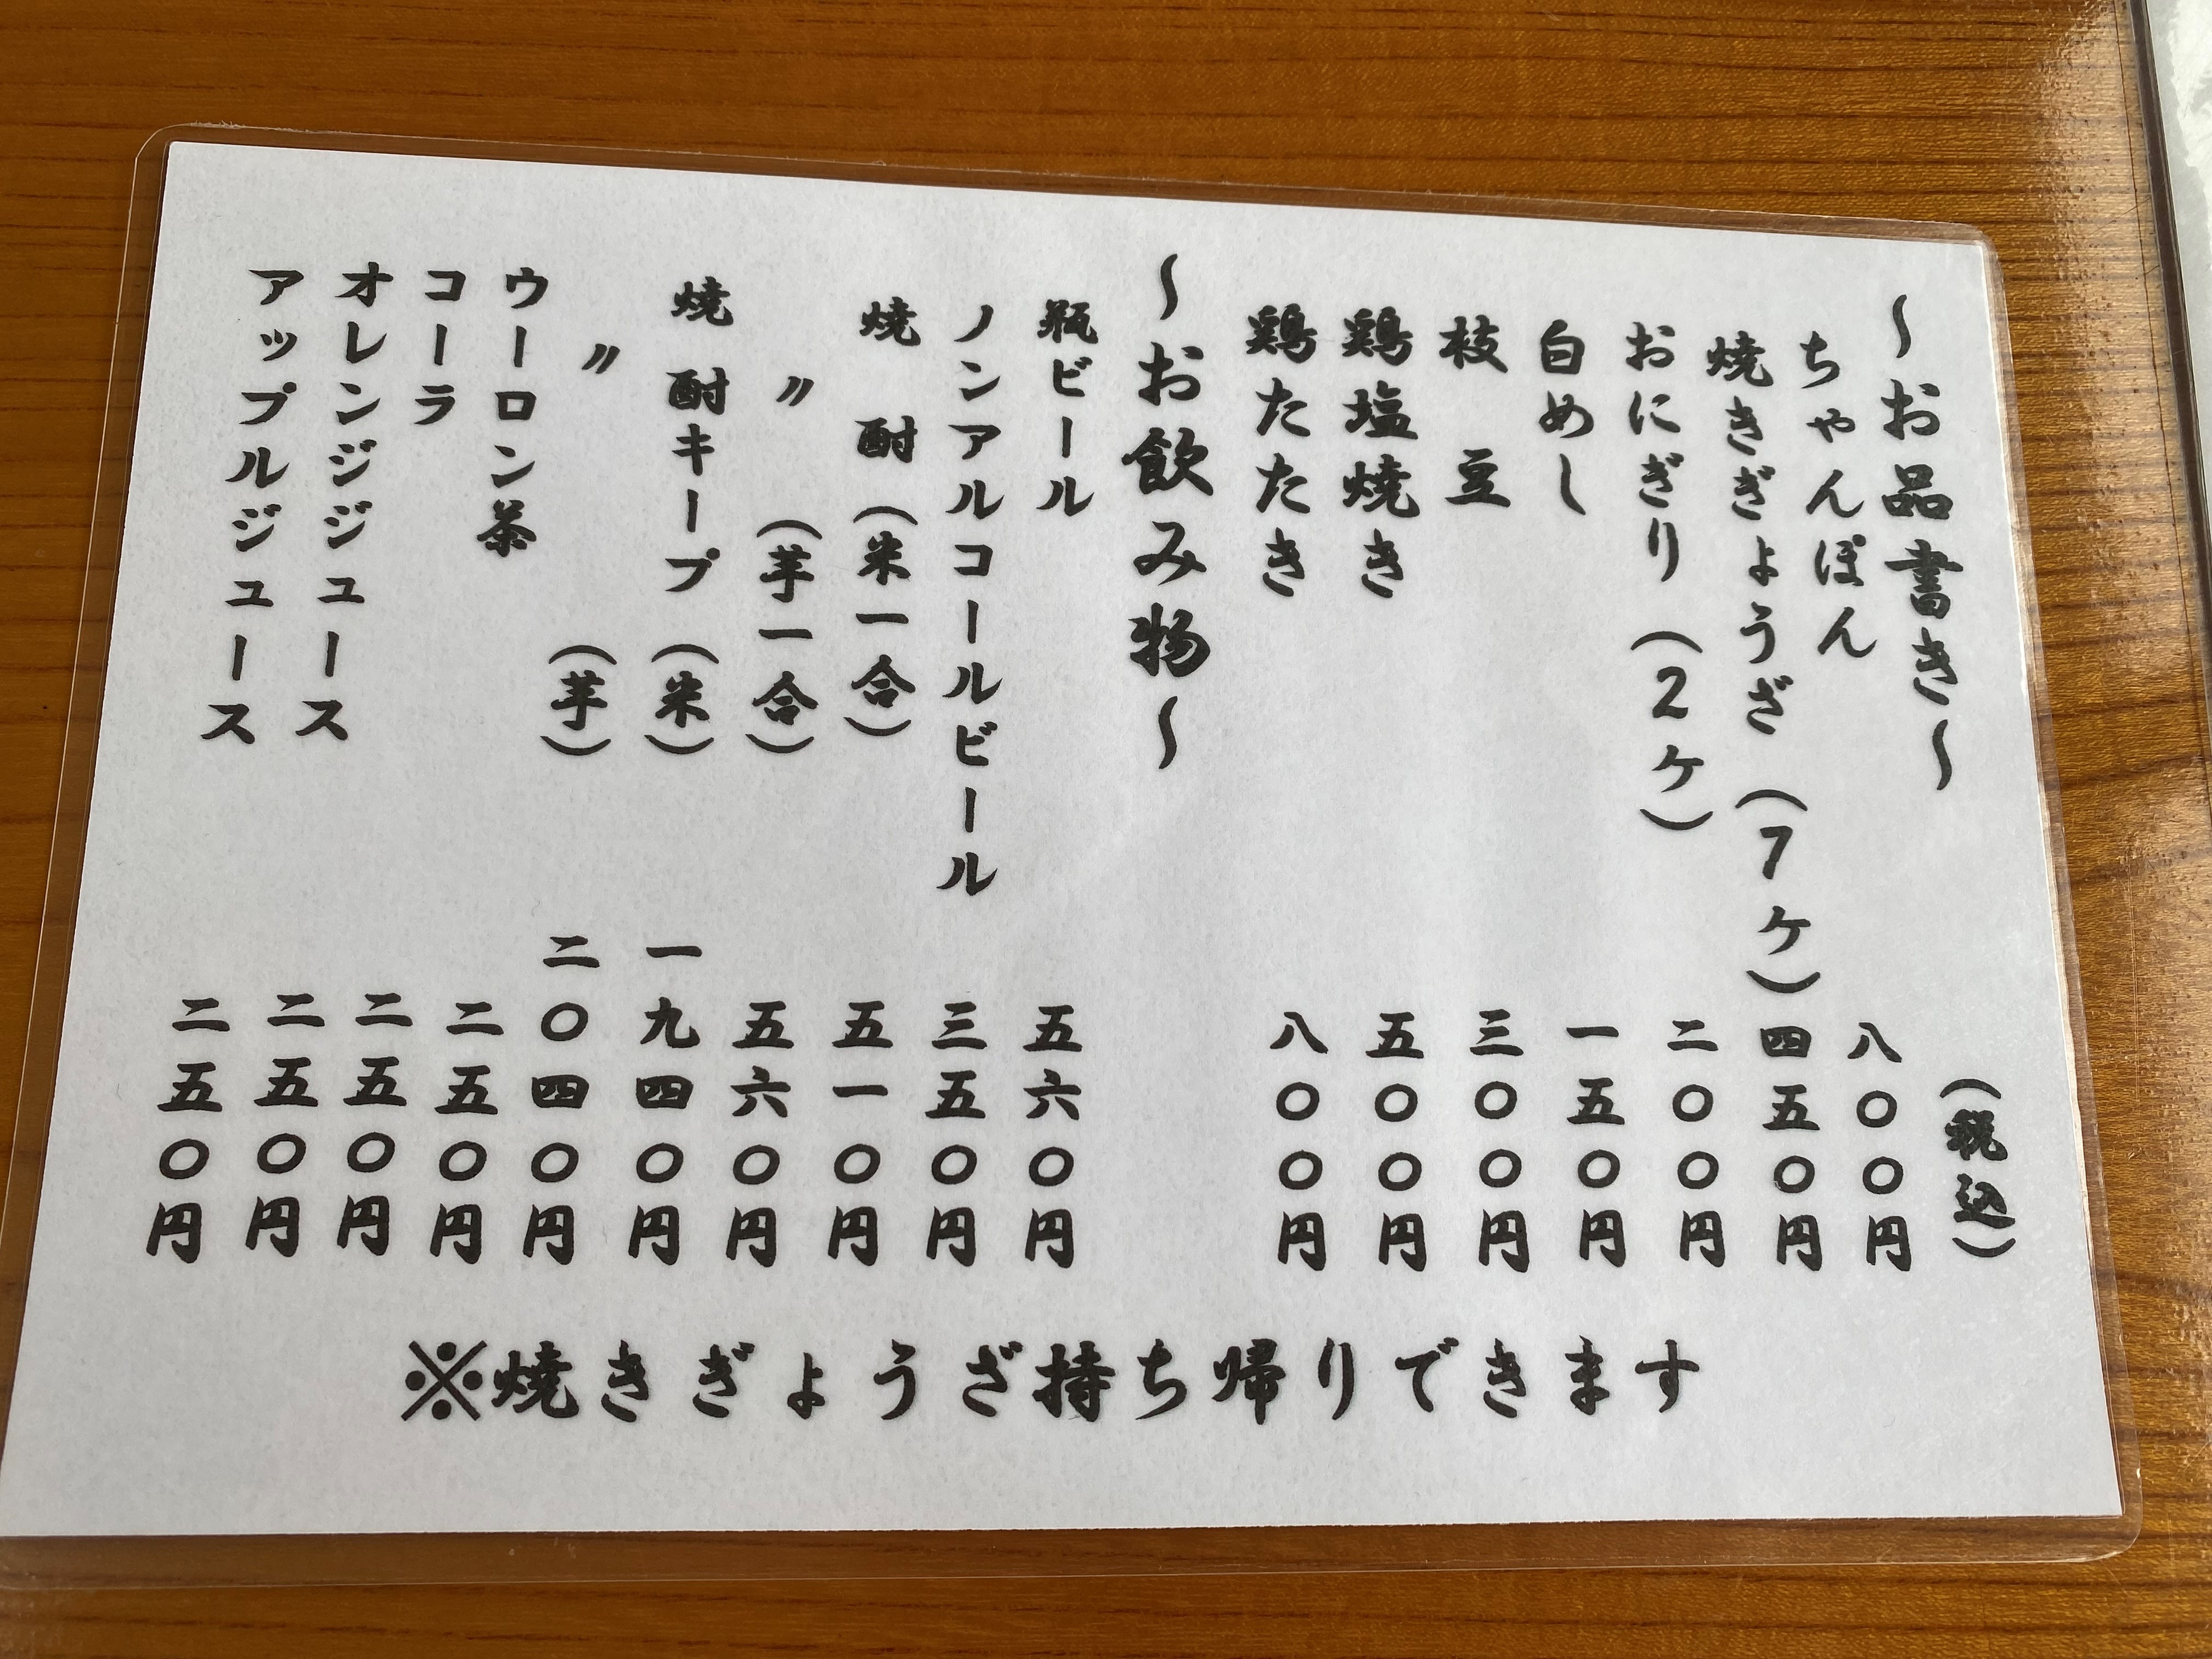 ～お品書き～ （税込）
ちゃんぽん 八〇〇円
焼きぎょうざ（7ヶ） 四五〇円
おにぎり（2ヶ） 二〇〇円
白めし 一五〇円
枝豆 三〇〇円
鶏塩焼き 五〇〇円
鶏たたき 八〇〇円
～お飲み物～
瓶ビール 五六〇円
ノンアルコールビール 三五〇円
焼酎（米一合） 五一〇円
〃（芋一合） 五六〇円
焼酎キープ（米） 一九四〇円
〃（芋） 二〇四〇円
ウーロン茶 二五〇円
コーラ 二五〇円
オレンジジュース 二五〇円
アップルジュース 二五〇円
※焼きぎょうざ持ち帰りできます